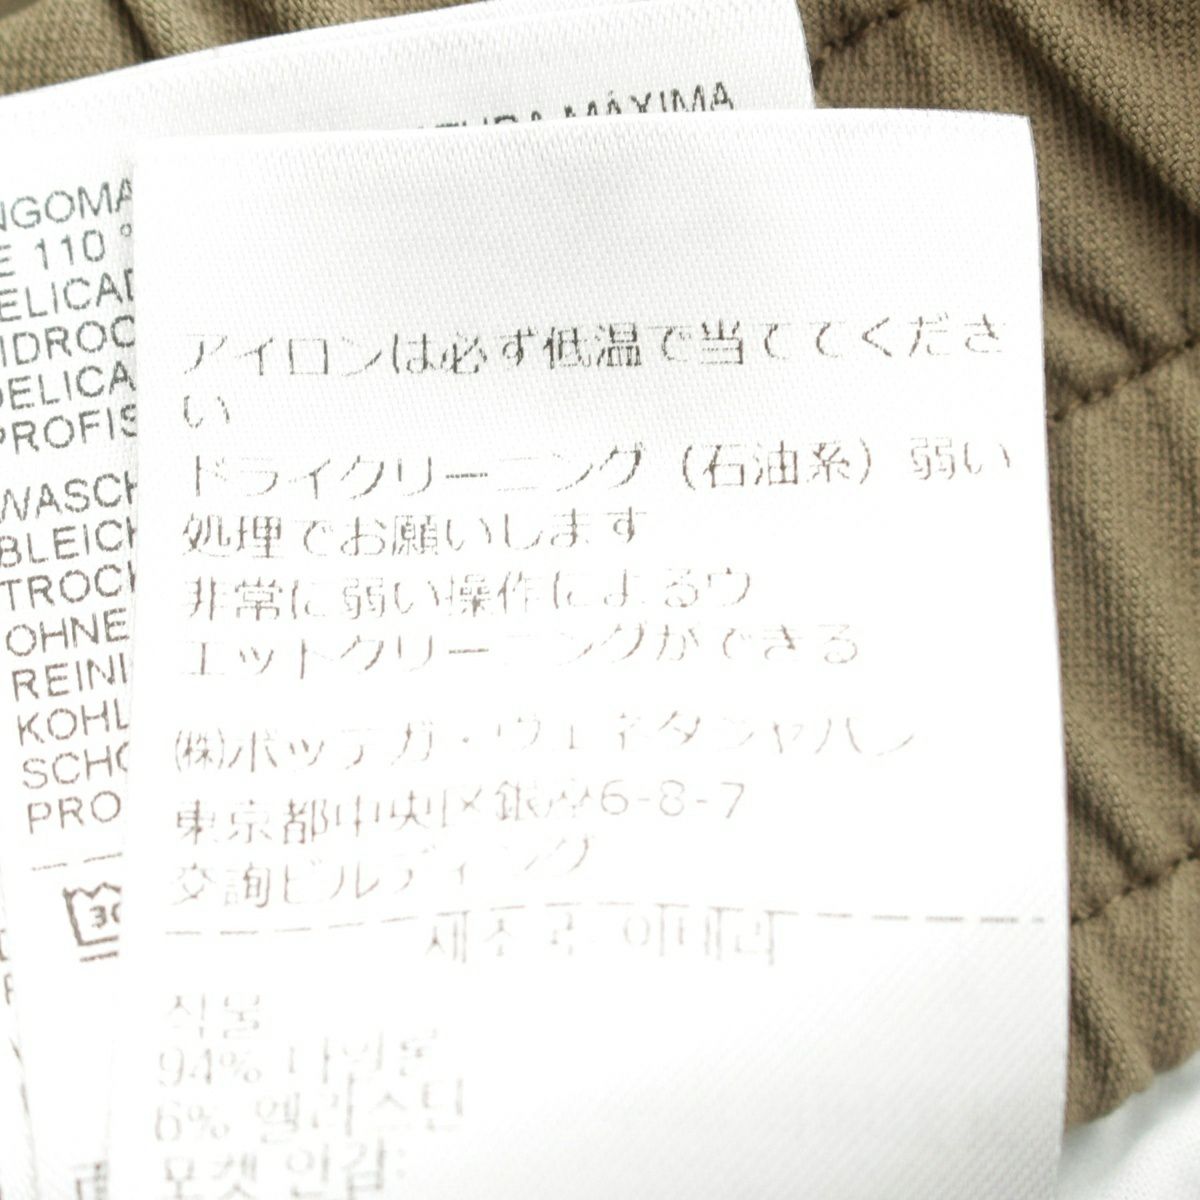 MÁXIMA
110 °
アイロンは必ず低温で当ててくださ
い
ドライクリーニング（石油系）弱い
処理でお願いします
非常に弱い操作によるウ
エットクリーニングができる
㈱ボッテガ・ヴェネタジャパン
東京都中央区銀座6-8-7
交詢ビルディング
제조국: 이태리
직물
94% 나일론
6% 엘라스틴
포켓 안감:
WASCH
BLEICH
TROCK
OHNE
REINI
KOHL
SCHO
PRO
30